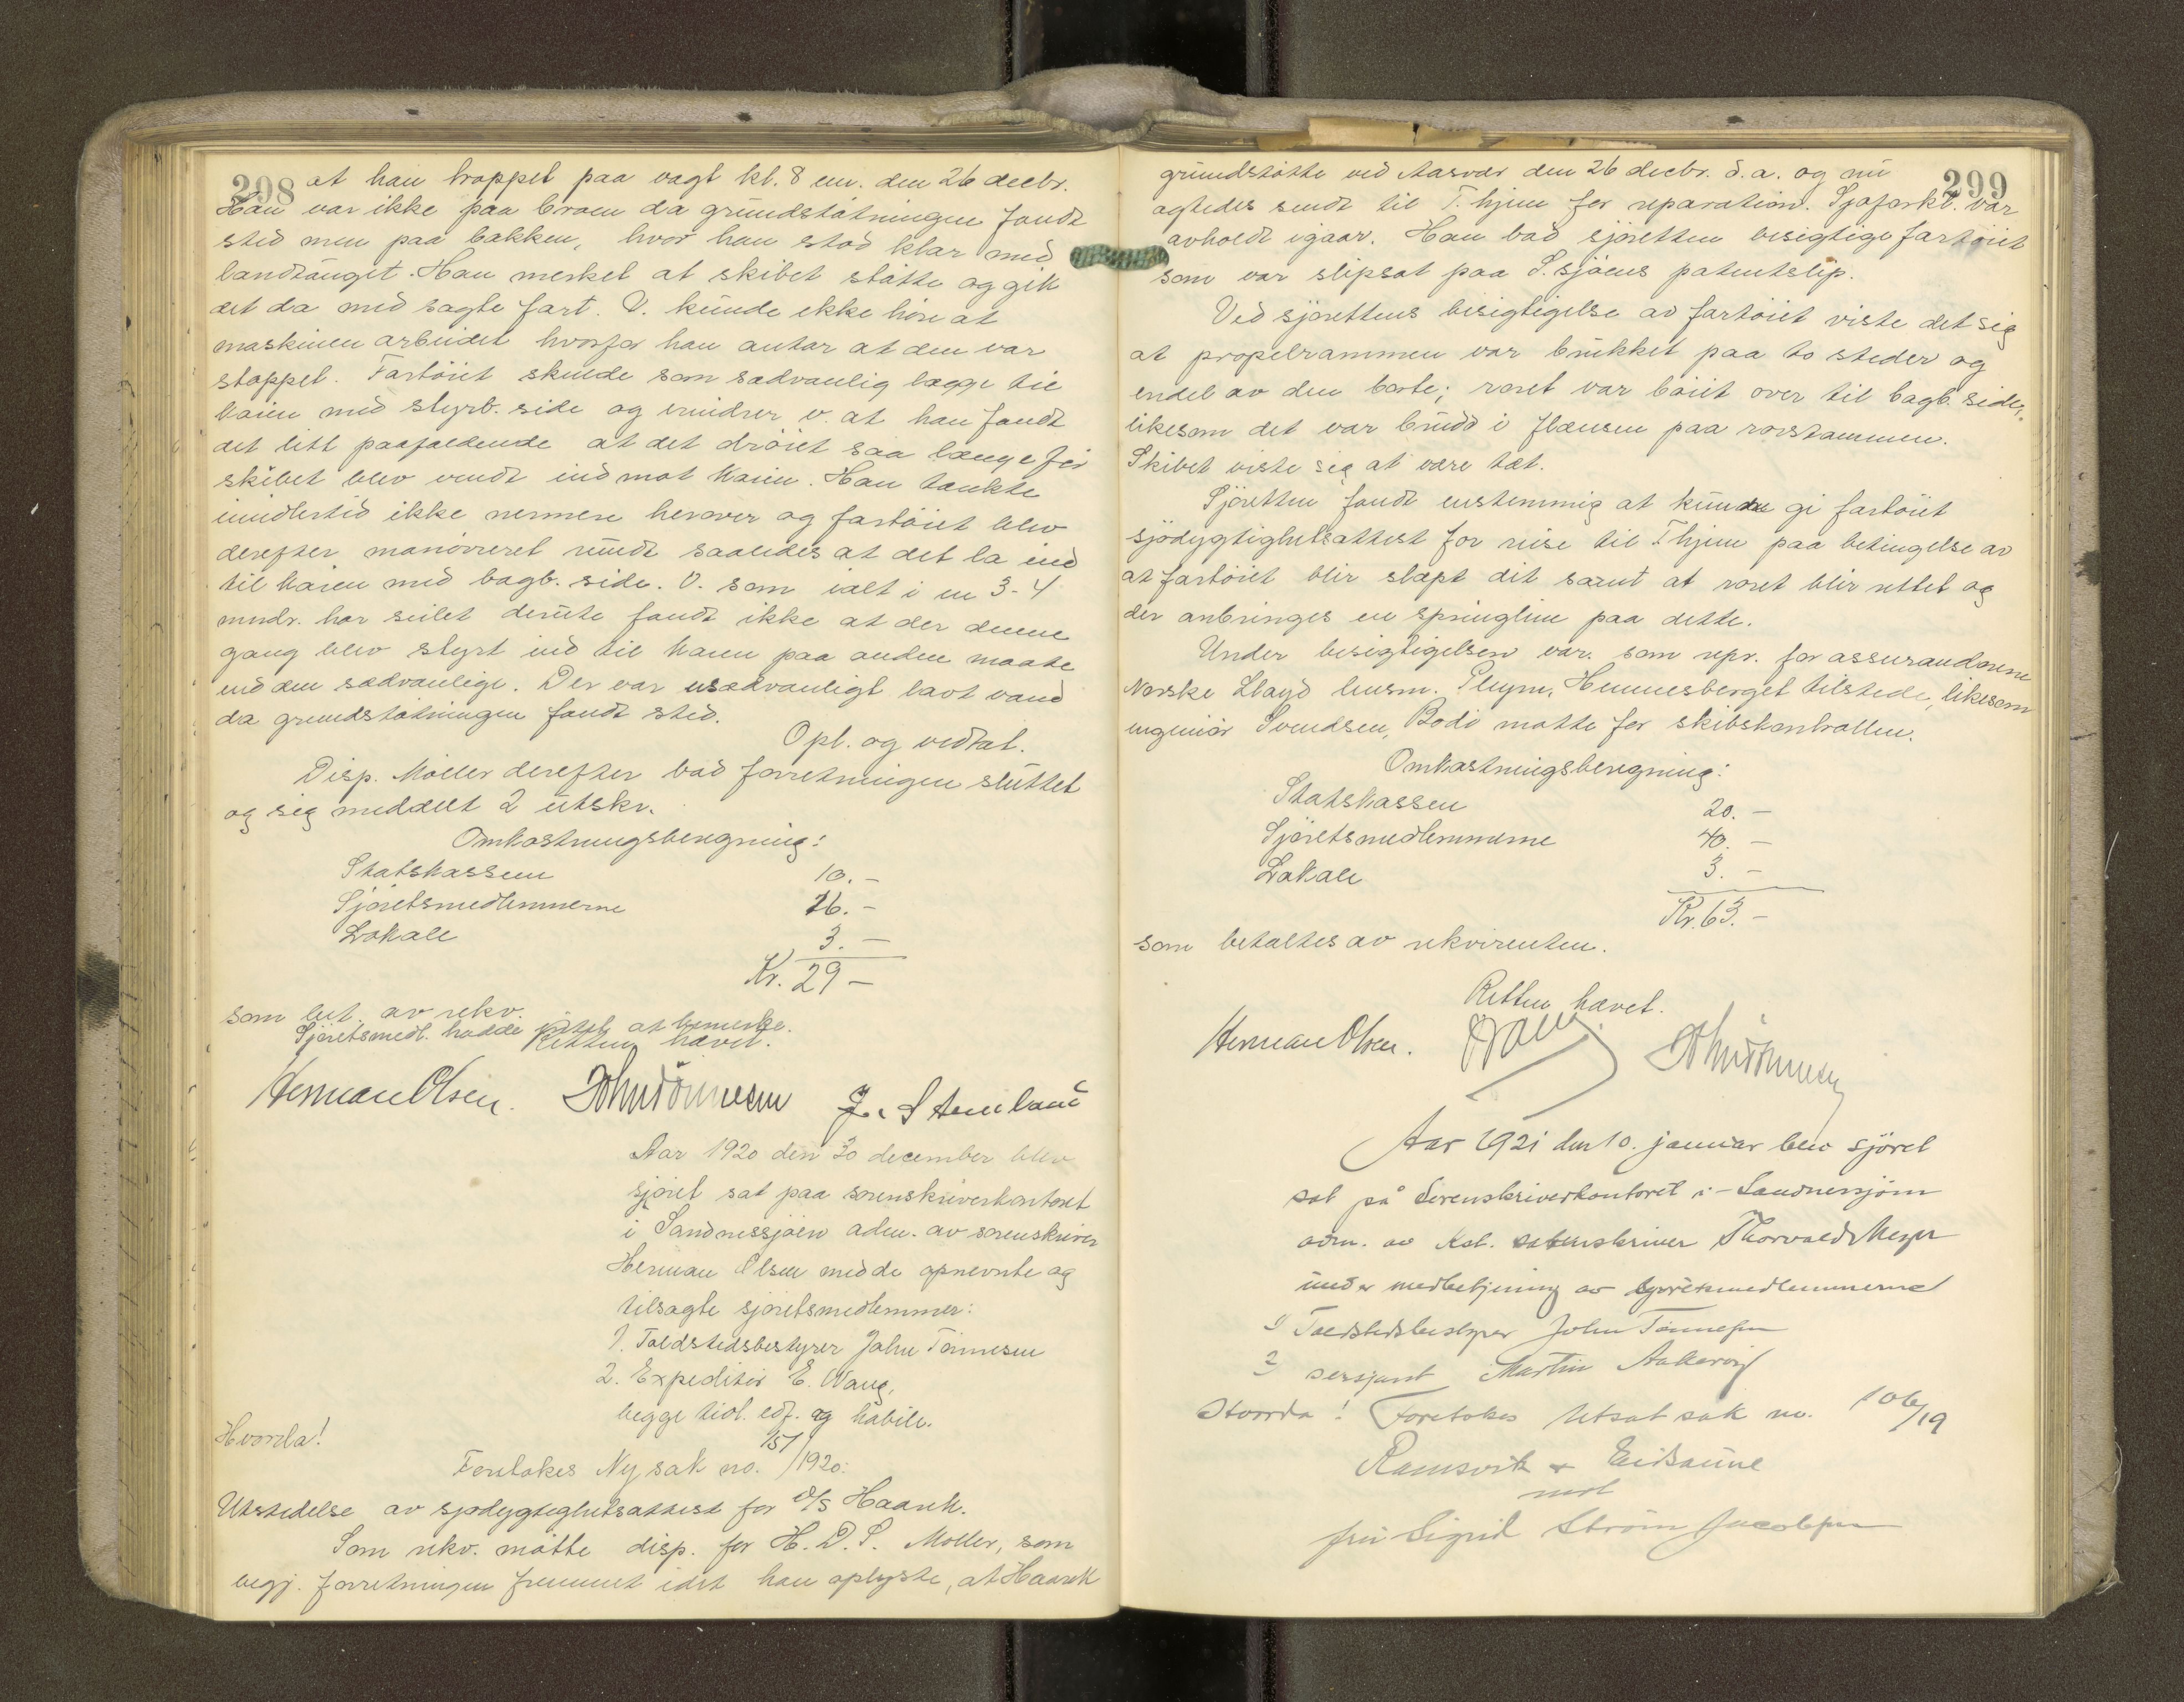 298
at han troppet paa vagt kl. 8 em. den 26 decbr.
Han var ikke paa broen da grundstøtningen fandt
sted men paa bakken, hvor han stod klar med
landtauget. Han merket at skibet støtte og gik
det da med sagte fart. V. kunde ikke høre at
maskinen arbeidet hvorfor han antar at den var
stoppet. Fartöiet skulde som sædvanlig lægge til
kaien med styrb. side og erindrer v. at han fandt
det litt paafaldende at det dröiet saa længe för
skibet blev vendt ind mot kaien. Han tænkte
imidlertid ikke nermere herover og fartöiet blev
derefter manövreret rundt saaledes at det la ind
til kaien med bagb. side. V. som ialt i en 3-4
mndr. har seilet derute fandt ikke at der denne
gang blev styrt ind til kaien paa anden maate
end den sædvanlige. Der var usædvanligt lavt vand
da grundstøtningen fandt sted.
Opl. og vedtat.
Disp. Möller derefter bad forretningen sluttet
og sig meddelt 2 utskr.
Omkostningsberegning:
Statskassen 10.-
Sjøretsmedlemmerne 16.-
Lokale 3.-
Kr. 29-
som bet. av rekv.
Sjøretsmedl. hadde intet at bemerke.
Retten hævet.
Herman Olsen. John Tönnesen J. Stenland
Aar 1920 den 30 december blev
sjøret sat paa sorenskriverkontoret
i Sandnessjøen adm. av sorenskriver
Herman Olsen med de opnevnte og
tilsagte sjøretsmedlemmer:
1. Toldstedsbestyrer John Tönnesen
2. Expeditör E. Wang,
begge tidl. edf. og habile.
Hvorda!
Foretokes Ny sak no. 151/1920:
Utstedelse av sjødygtighetsattest for D/S Haarek.
Som rekv. møtte disp. for H. D. S. Möller, som
begj. forretningen fremmet idet han oplyste, at Haarek
299
grundstøtte ved Aasvær den 26 decbr. d.a. og nu
agtedes sendt til T.hjem for reparation. Sjøforkl. var
avholdt igaar. Han bad sjøretten besigtige fartöiet
som var slipsat paa S.sjøens patentslip.
Ved sjørettens besigtigelse av fartöiet viste det sig
at propelrammen var brukket paa to steder og
endel av den borte; roret var böiet over til bagb. side,
likesom det var brudd i flænsen paa rorstammen.
Skibet viste sig at være tæt.
Sjøretten fandt enstemmig at kunde gi fartöiet
sjødygtighetsattest for reise til T.hjem paa betingelse av
at fartöiet blir slæpt dit samt at roret blir rettet og
der anbringes en springline paa dette.
Under besigtigelsen var som repr. for assurandørene
Norske Lloyd lensm. Pleym, Hemnesberget tilstede, likesom
ingeniör Svendsen, Bodö møtte for skibskontrollen.
Omkostningsberegning:
Statskassen 20.-
Sjøretsmedlemmerne 40.-
Lokale 3.-
Kr. 63.-
som betaltes av rekvirenten.
Retten hævet.
Herman Olsen. EWang John Tönnesen
Aar 1921 den 10. januar blev sjöret
sat på Sorenskriverkontoret i Sandnessjøen
adm. av Kst. sorenskriver Thorvald Meyer
under medbetjening av sjøretsmedlemmerne
1) Toldstedsbestyrer John Tönnesen
2 sersjant Martin Aakervik
Hvorda! Foretokes Utsat sak no. 106/19
Ramsvik & Eidsaune
mot
fru Sigrid Ström Jacobsen